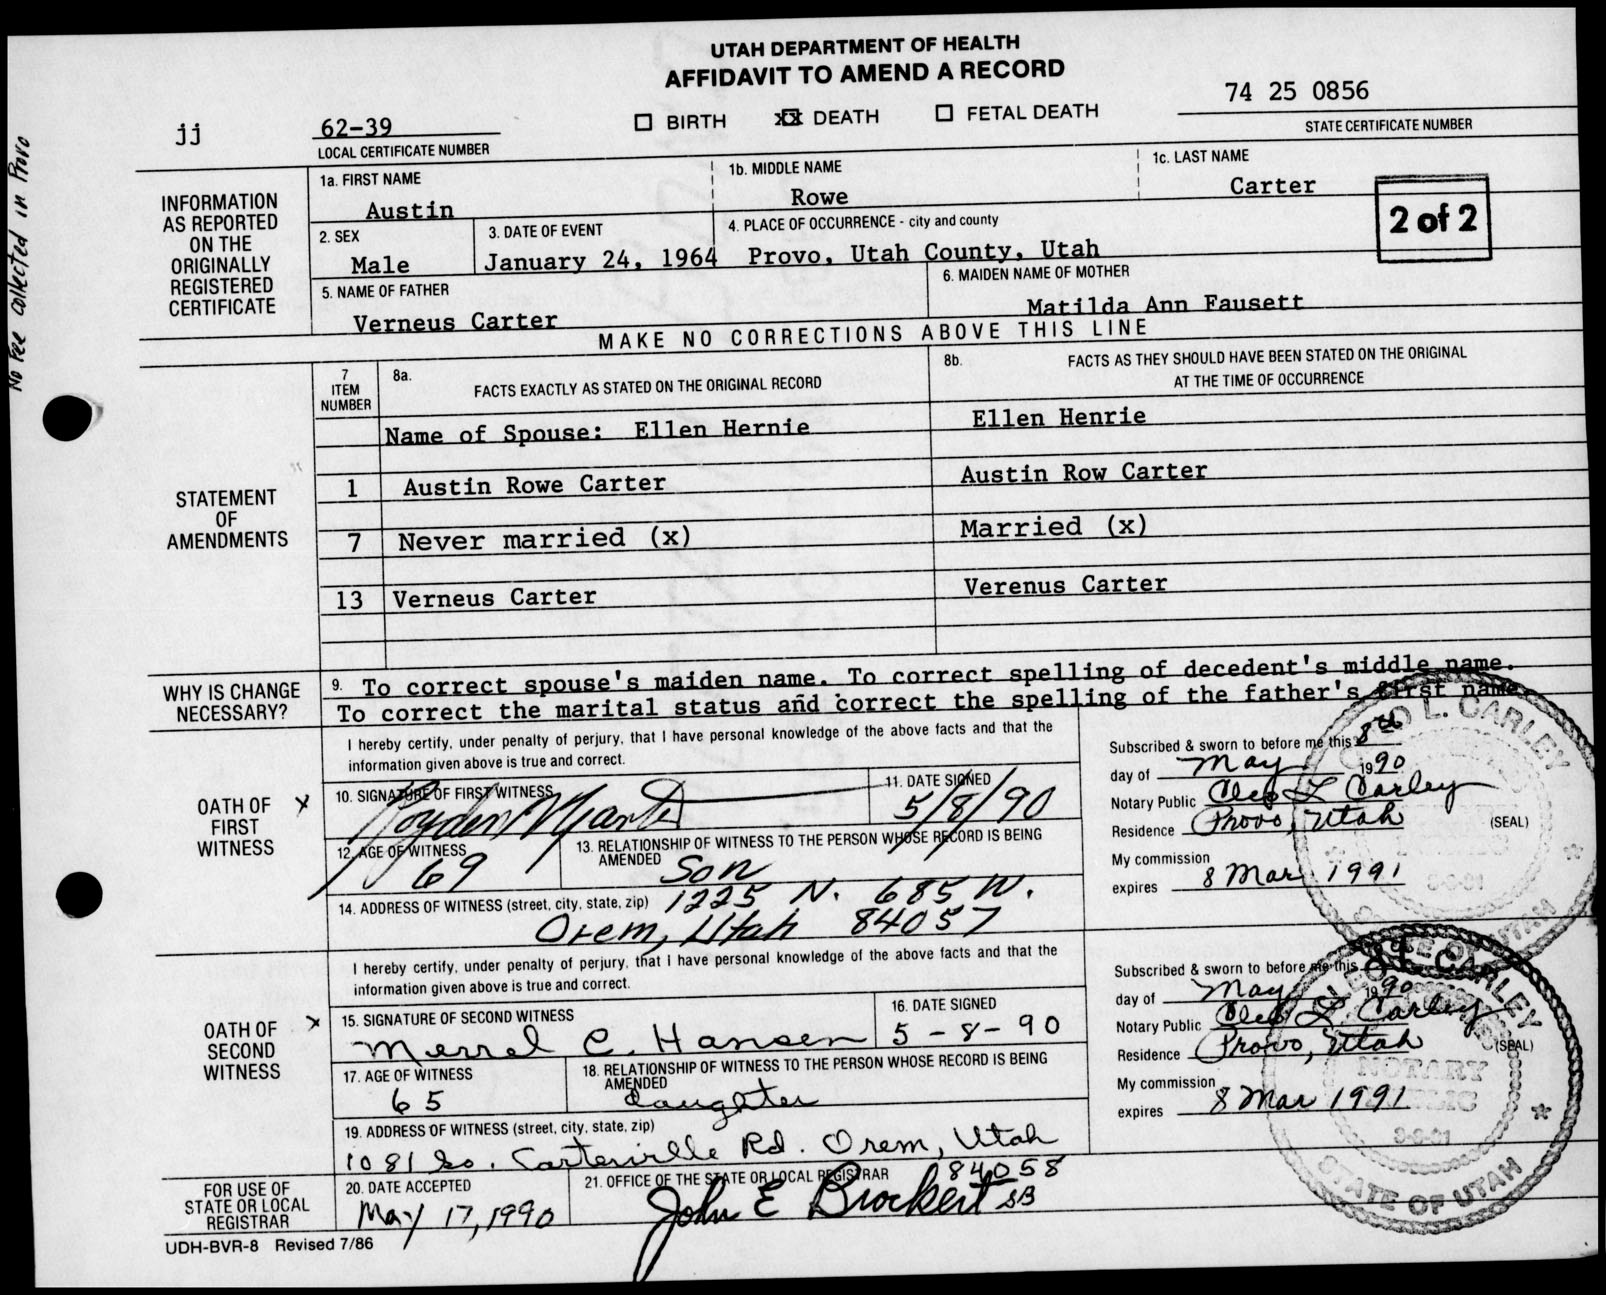 UTAH DEPARTMENT OF HEALTH
AFFIDAVIT TO AMEND A RECORD
BIRTH XX DEATH FETAL DEATH
74 25 0856
STATE CERTIFICATE NUMBER
jj
62-39
LOCAL CERTIFICATE NUMBER
No Fee collected in Provo
INFORMATION AS REPORTED ON THE ORIGINALLY REGISTERED CERTIFICATE
1a. FIRST NAME
Austin
1b. MIDDLE NAME
Rowe
1c. LAST NAME
Carter
2 of 2
2. SEX
Male
3. DATE OF EVENT
January 24, 1964
4. PLACE OF OCCURRENCE - city and county
Provo, Utah County, Utah
5. NAME OF FATHER
Verneus Carter
6. MAIDEN NAME OF MOTHER
Matilda Ann Fausett
MAKE NO CORRECTIONS ABOVE THIS LINE
STATEMENT OF AMENDMENTS
7 ITEM NUMBER
8a. FACTS EXACTLY AS STATED ON THE ORIGINAL RECORD
8b. FACTS AS THEY SHOULD HAVE BEEN STATED ON THE ORIGINAL AT THE TIME OF OCCURRENCE
Name of Spouse: Ellen Hernie Ellen Henrie
1 Austin Rowe Carter Austin Row Carter
7 Never married (x) Married (x)
13 Verneus Carter Verenus Carter
WHY IS CHANGE NECESSARY?
9. To correct spouse's maiden name. To correct spelling of decedent's middle name.
To correct the marital status and correct the spelling of the father's first name.
OATH OF FIRST WITNESS
X
I hereby certify, under penalty of perjury, that I have personal knowledge of the above facts and that the
information given above is true and correct.
10. SIGNATURE OF FIRST WITNESS
11. DATE SIGNED
5/8/90
12. AGE OF WITNESS
69
13. RELATIONSHIP OF WITNESS TO THE PERSON WHOSE RECORD IS BEING AMENDED
Son
14. ADDRESS OF WITNESS (street, city, state, zip) 1225 N. 685 W.
Orem, Utah 84057
Subscribed & sworn to before me this 8th
day of May 1990
Notary Public Cleo L Carley
Residence Provo, Utah
(SEAL)
My commission
expires 8 Mar 1991
CLEO L. CARLEY
STATE OF UTAH
OATH OF SECOND WITNESS
X
I hereby certify, under penalty of perjury, that I have personal knowledge of the above facts and that the
information given above is true and correct.
15. SIGNATURE OF SECOND WITNESS
Merrel C. Hansen
16. DATE SIGNED
5-8-90
17. AGE OF WITNESS
65
18. RELATIONSHIP OF WITNESS TO THE PERSON WHOSE RECORD IS BEING AMENDED
daughter
19. ADDRESS OF WITNESS (street, city, state, zip)
1081 So. Carterville Rd. Orem, Utah
84058
Subscribed & sworn to before me this
day of May 1990
Notary Public Cleo L. Carley
Residence Provo, Utah
(SEAL)
My commission
expires 8 Mar 1991
CLEO L. CARLEY
NOTARY
PUBLIC
3-8-91
STATE OF UTAH
FOR USE OF STATE OR LOCAL REGISTRAR
20. DATE ACCEPTED
May 17, 1990
21. OFFICE OF THE STATE OR LOCAL REGISTRAR
John E Brockert SB
UDH-BVR-8 Revised 7/86